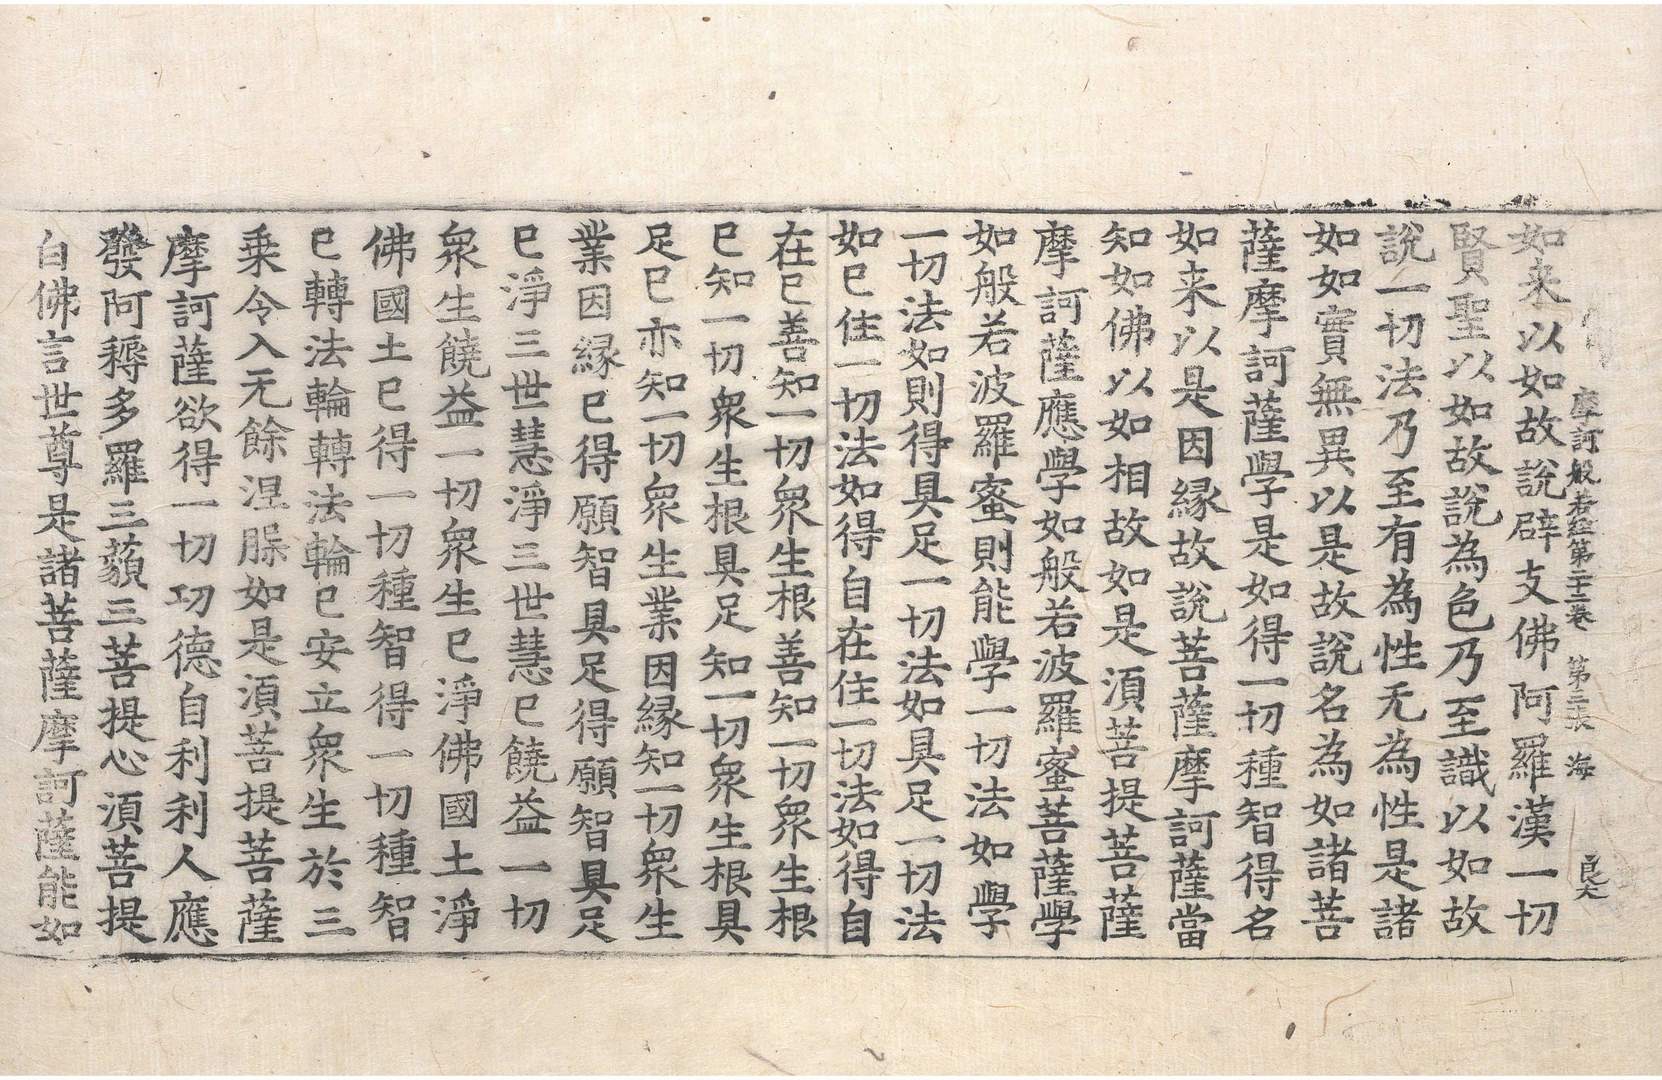 摩訶般若經第二十二卷 第三張 海 良大
如来以如故說辟支佛阿羅漢一切
賢聖以如故說為色乃至識以如故
說一切法乃至有為性无為性是諸
如如實無異以是故說名為如諸菩
薩摩訶薩學是如得一切種智得名
如来以是因緣故說菩薩摩訶薩當
知如佛以如相故如是湏菩提菩薩
摩訶薩應學如般若波羅蜜菩薩學
如般若波羅蜜則能學一切法如學
一切法如則得具足一切法如具足一切法
如已住一切法如得自在住一切法如得自
在已善知一切衆生根善知一切衆生根
已知一切衆生根具足知一切衆生根具
足已亦知一切衆生業因緣知一切衆生
業因緣已得願智具足得願智具足
已淨三世慧淨三世慧已饒益一切
衆生饒益一切衆生已淨佛國土淨
佛國土已得一切種智得一切種智
已轉法輪轉法輪已安立衆生於三
乗令入无餘涅槃如是湏菩提菩薩
摩訶薩欲得一切功德自利利人應
發阿耨多羅三藐三菩提心湏菩提
白佛言世尊是諸菩薩摩訶薩能如